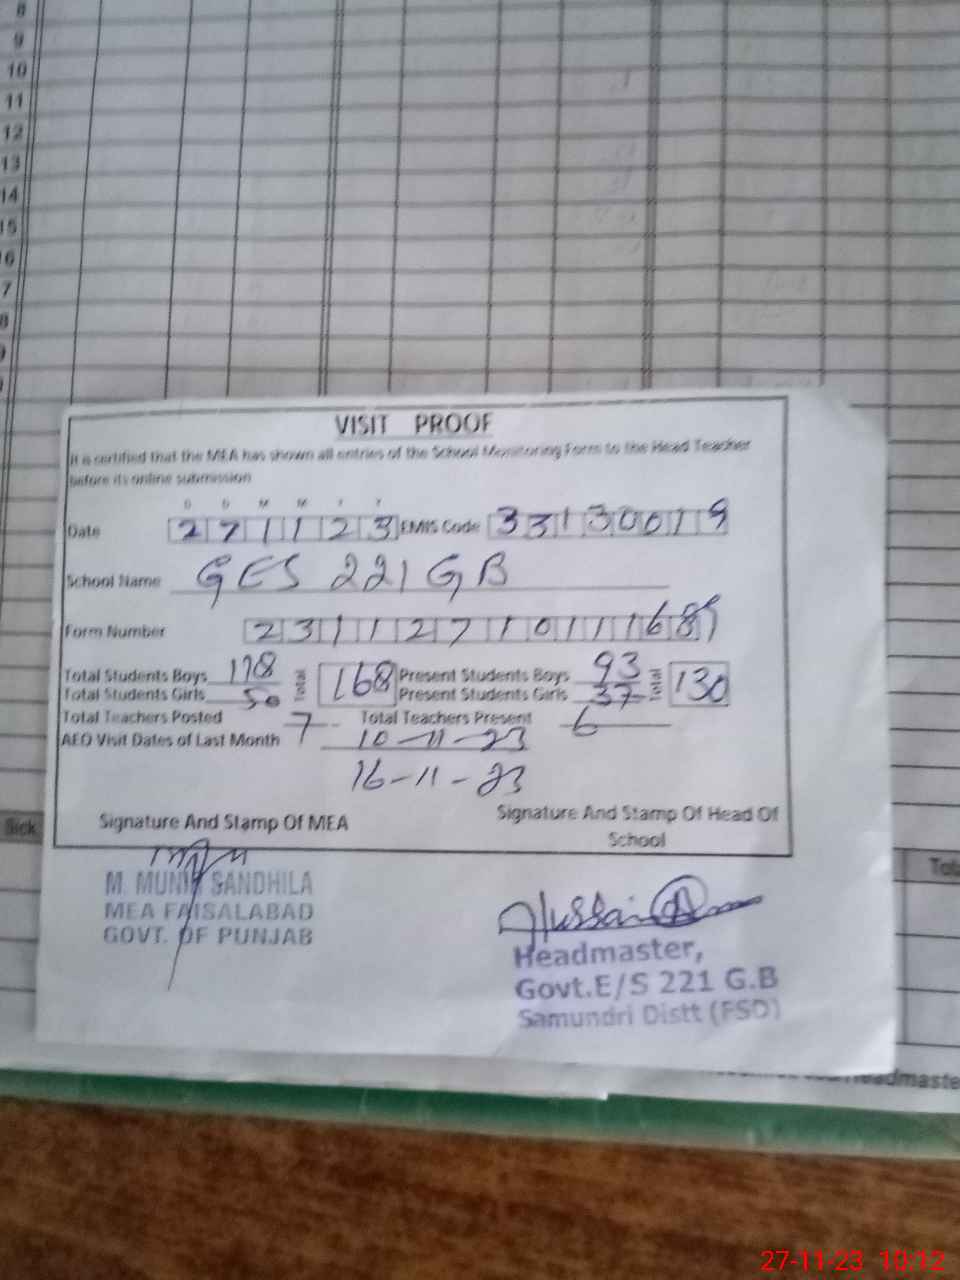 8
9
10
11
12
13
14
15
16
7
8
VISIT PROOF
It is certified that the MEA has shown all entries of the School Monitoring Form to the Head Teacher
before its online submission
D D M M Y Y
Date 271123 EMIS Code 33130019
School Name GES 221 GB
Form Number 2311271011168
Total Students Boys 118 Total 168 Present Students Boys 93 Total 130
Total Students Girls 50 Present Students Girls 37
Total Teachers Posted 7 Total Teachers Present 6
AEO Visit Dates of Last Month 10-11-23
16-11-23
Signature And Stamp Of MEA
Signature And Stamp Of Head Of
School
Sick
Tota
M. MUNIR SANDHILA
MEA FAISALABAD
GOVT. OF PUNJAB
Hussain
Headmaster,
Govt.E/S 221 G.B
Samundri Distt (FSD)
eadmaste
27-11-23 10:12